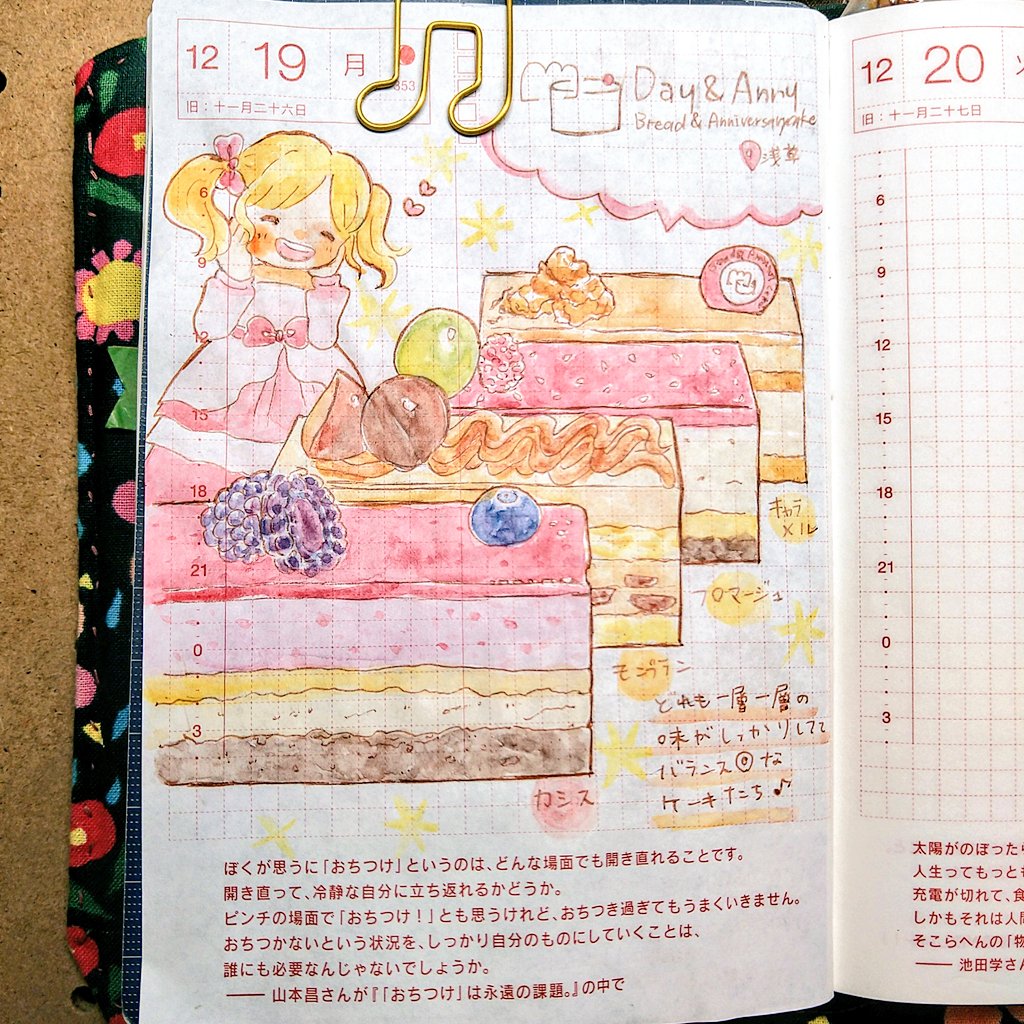 12 19 月
353
旧：十一月二十六日
Day & Anny
Bread & Anniversarycake
浅草
6
9
12
15
18
21
0
3
キャラメル
フロマージュ
モンブラン
カシス
どれも一層一層の
味がしっかりしてて
バランス◎な
ケーキたち♪
ぼくが思うに「おちつけ」というのは、どんな場面でも開き直れることです。
開き直って、冷静な自分に立ち返れるかどうか。
ピンチの場面で「おちつけ！」とも思うけれど、おちつき過ぎてもうまくいきません。
おちつかないという状況を、しっかり自分のものにしていくことは、
誰にも必要なんじゃないでしょうか。
—— 山本昌さんが『「おちつけ」は永遠の課題。』の中で
12 20
旧：十一月二十七日
6
9
12
15
18
21
0
3
太陽がのぼったら
人生ってもっとも
充電が切れて、食
しかもそれは人間
そこらへんの「物
—— 池田学さん